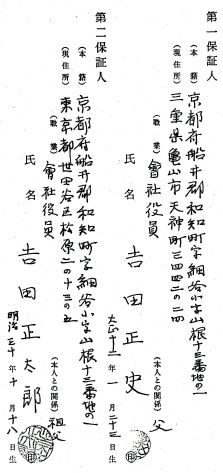 第一保証人
(本籍) 京都府船井郡和知町字細谷小字山根十三番地の一
(現住所) 三重県亀山市天神町三四四二の二四
(職業) 會社役員
(本人との関係) 父
氏名 吉田正史
大正十二年一月二十三日生
第二保証人
(本籍) 京都府船井郡和知町字細谷小字山根十三番地の一
(現住所) 東京都世田谷区松原二の十三の五
(職業) 會社役員
(本人との関係) 祖父
氏名 吉田正太郎
明治三十年十月十八日生